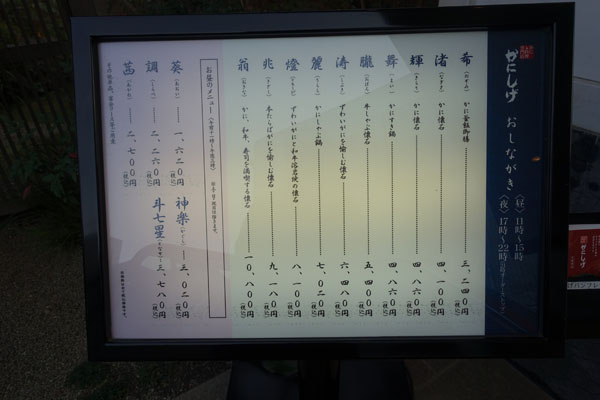 かにしげ おしながき
〈昼〉11時〜15時
〈夜〉17時〜22時
希 かに釜飯御膳 三、二四〇円
渚 かに懐石 四、一〇〇円
輝 かに懐石 四、八六〇円
舞 かにすき鍋 四、八六〇円
朧 牛しゃぶ懐石 五、四〇〇円
涛 ずわいがにを愉しむ懐石 六、四八〇円
麓 かにしゃぶ鍋 七、〇二〇円
燈 ずわいがにと和牛溶岩焼の懐石 八、一〇〇円
兆 本たらばがにを愉しむ懐石 九、一八〇円
翁 かに、和牛、寿司を満喫する懐石 一〇、八〇〇円
お昼のメニュー
葵 (あおい) 一、六二〇円
調 (しらべ) 二、一六〇円
茜 (あかね) 二、七〇〇円
神楽 (かぐら) 三、〇二〇円
斗七星 三、七八〇円
かにしげ